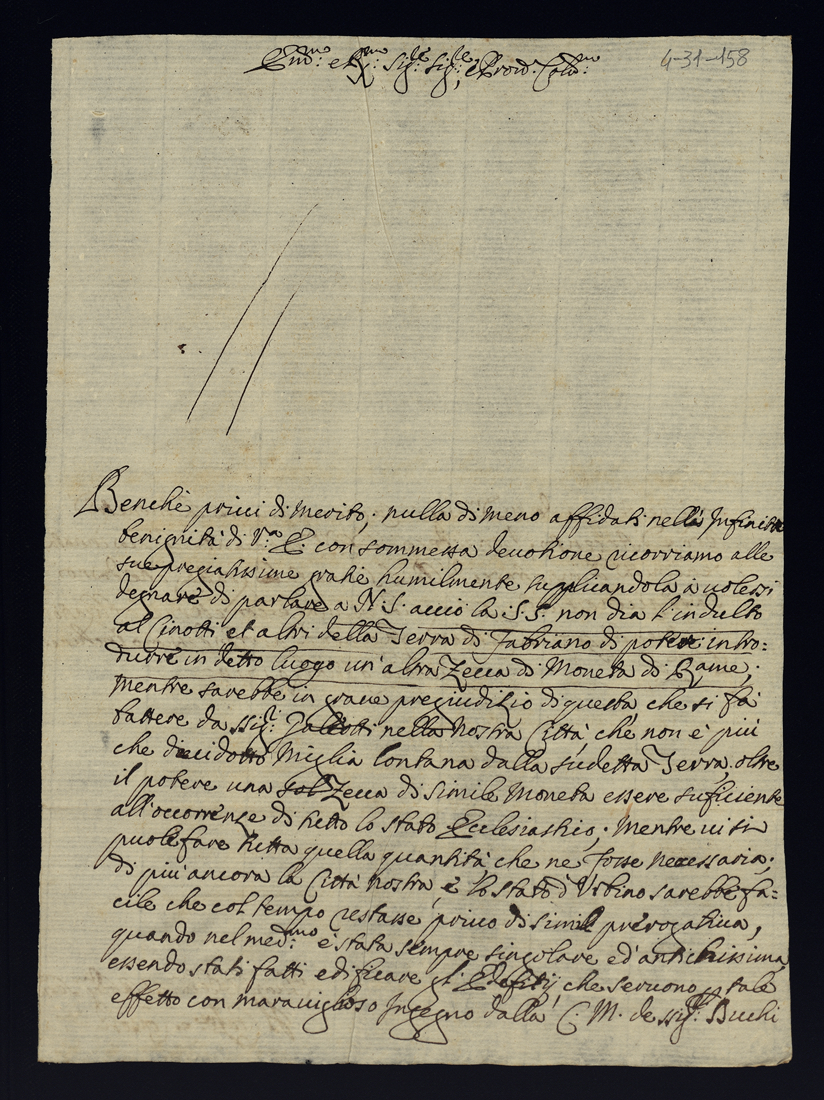 Em̃.mo e R.mo Sig.re Sig.re, e Prõn. Col.mo
4-31-158
Benchè privi di merito, nulla di meno affidati nella Infinita
benignità di V.ra E. con sommessa devotione ricorriamo alle
sue pregiatissime gratie humilmente supplicandola à volessi
degnare di parlare a N. S. acciò la S. S. non dia l'indulto
al Cinotti et altri della Terra di Fabriano di potere intro=
durre in detto luogo un'altra Zecca di Moneta di Rame,
mentre sarebbe in grave pregiudizio di questa, che si fà
battere da ssig.ri Galeotti nella Nostra Città, che non è più
che diecidotto Miglia lontana dalla sudetta Terra, oltre
il potere una sol Zecca di simile Moneta essere suficiente
all'occorrenze di tutto lo stato Ecclesiastico, mentre vi si
puole fare tutta quella quantità che ne fosse necessaria;
di più ancora la Città nostra, e lo stato d'Urbino sarebbe fa=
cile che col tempo restasse privo di simil prerogativa,
quando nel med.mo è stata sempre singolare ed'antichissima,
essendo stati fatti edificare gl'Edefitij, che servono p tale
effetto con maraviglioso Ingegno dalla C. M. de ssig.ri Duchi